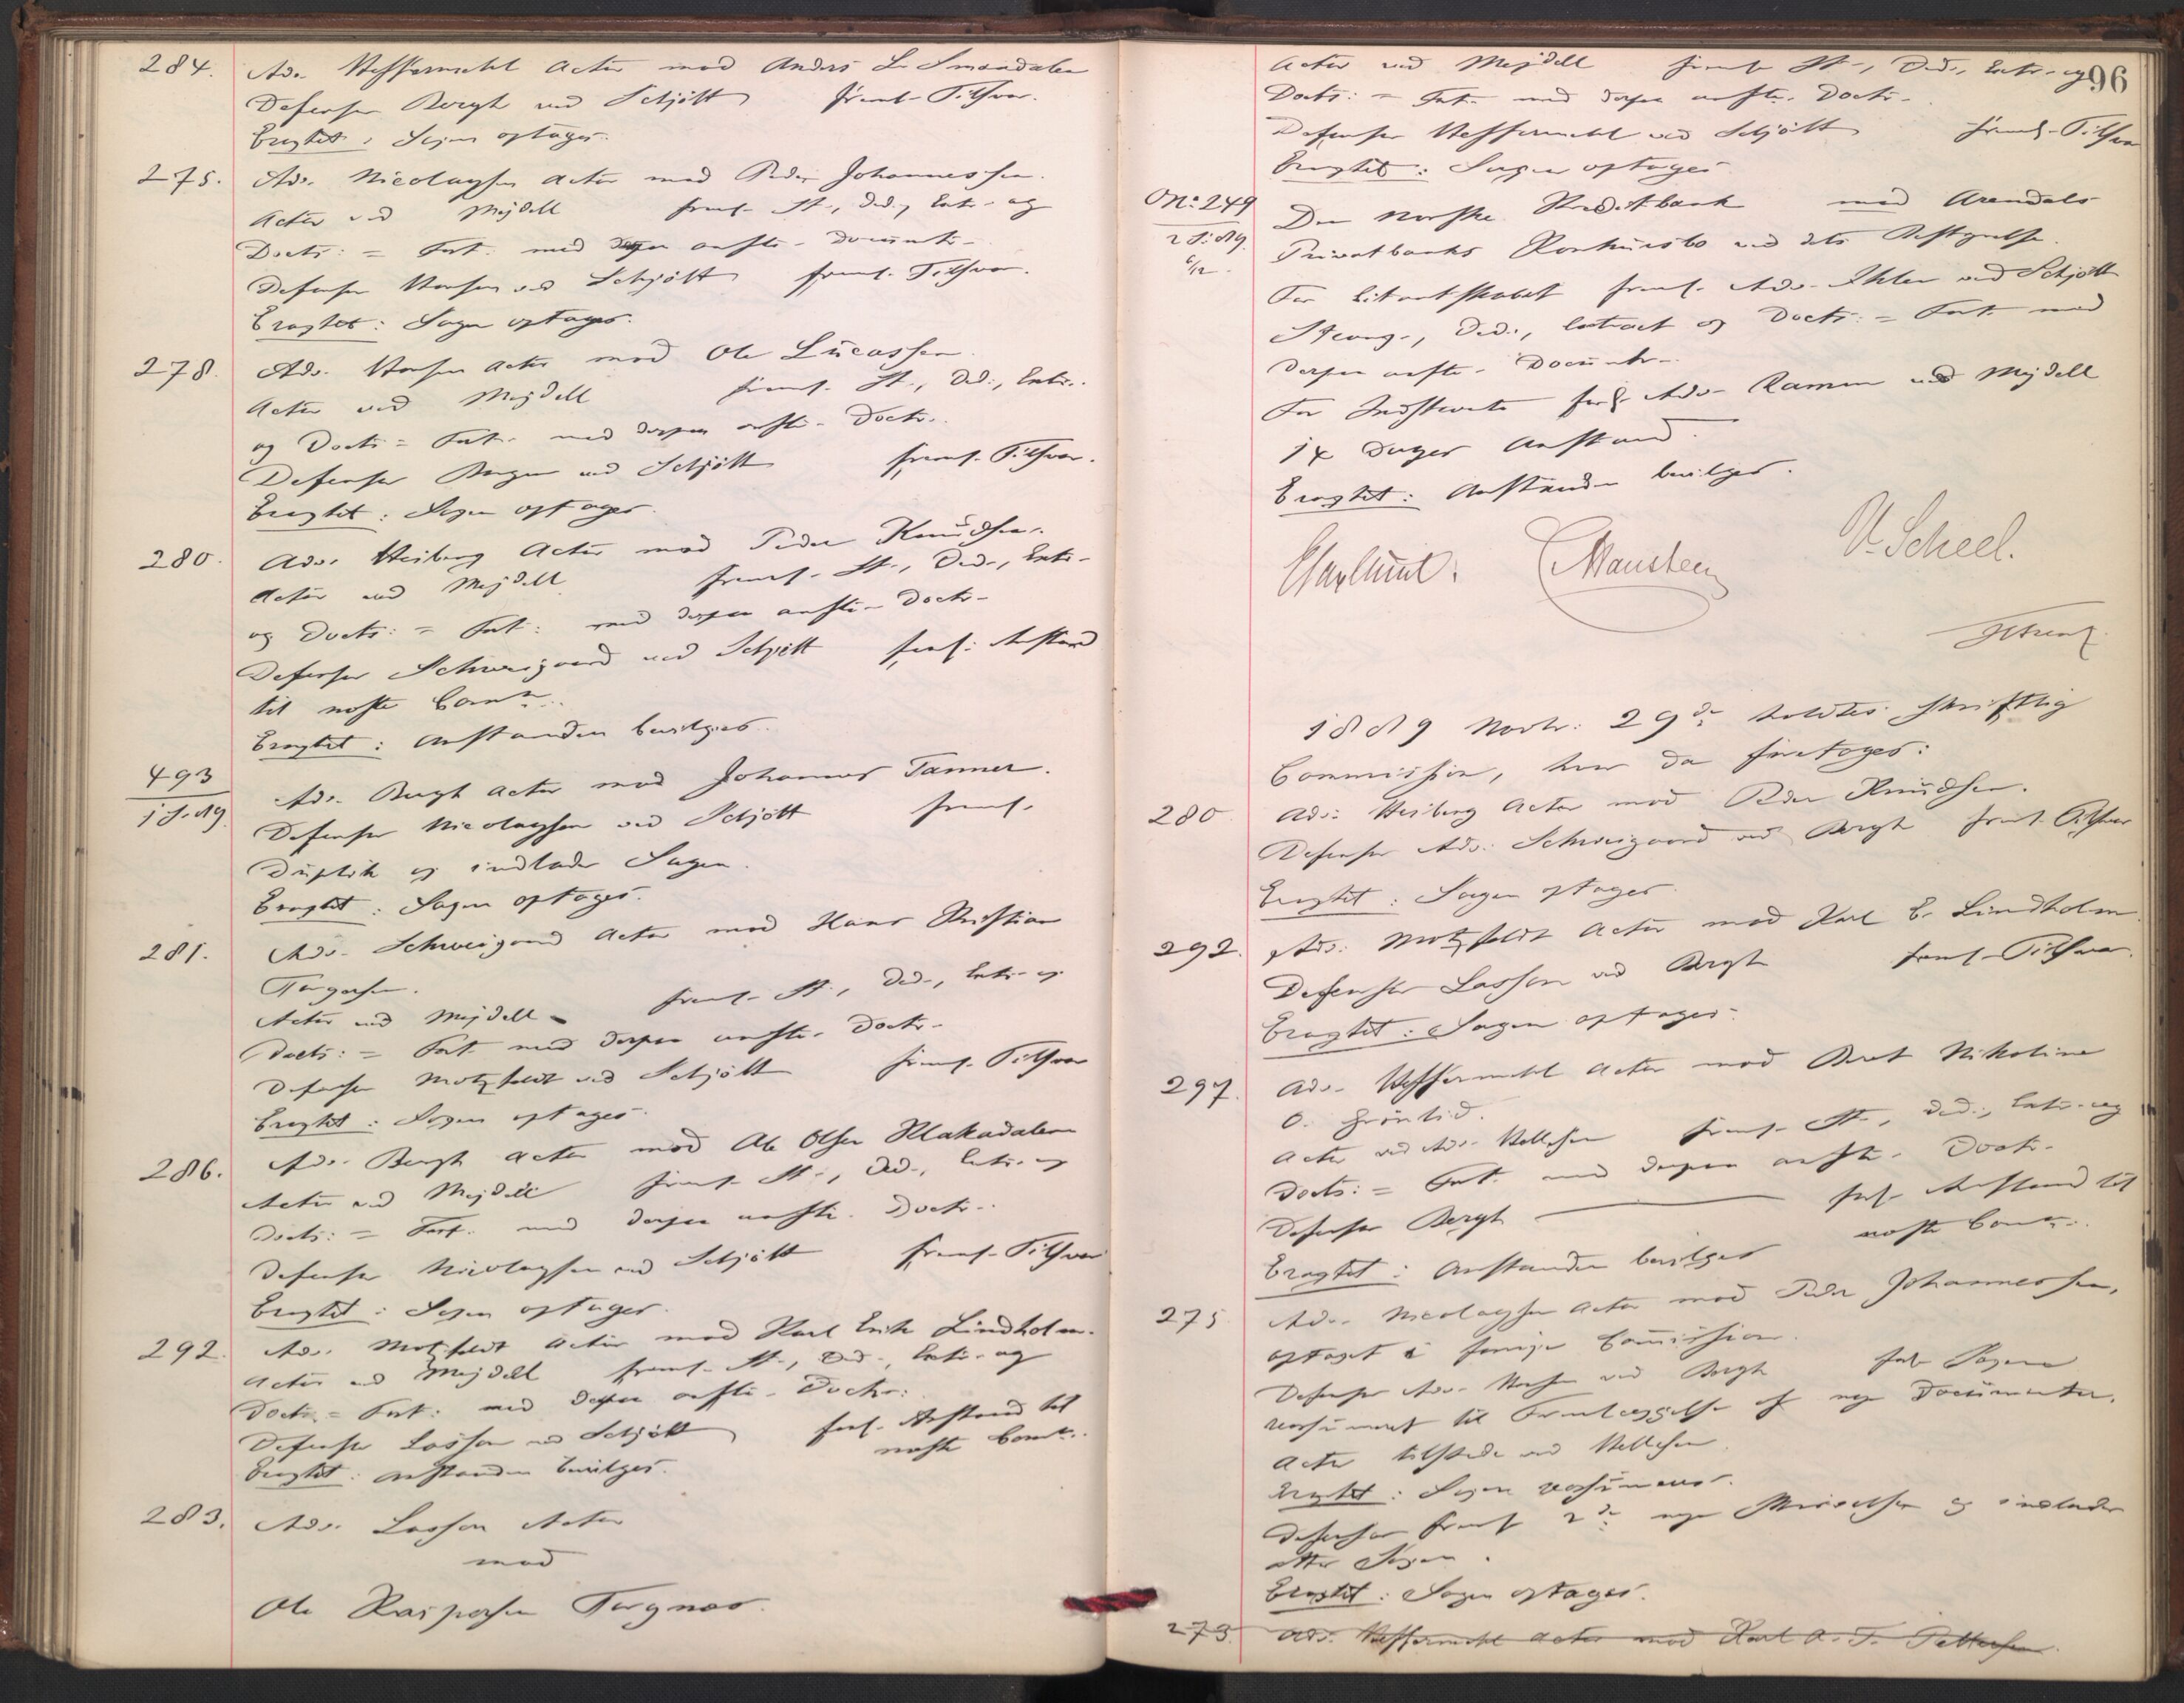 284. Adv. Steffermehl Actor mod Anders L. Smaadalen
Defensor Bergh ved Schjött freml. Tilsvar.
Eragtet: Sagen optages.
275. Adv. Nicolaysen Actor mod Peder Johannessen.
Actor ved Mejdell freml. St., Ded., Extr. og
Docts: = Fort. med derpaa anfte. Documtr.
Defensor Hansen ved Schjött freml. Tilsvar.
Eragtet: Sagen optages.
278. Adv. Hansen Actor mod Ole Lucassen.
Actor ved Mejdell freml. St., Ded., Extr.
og Docts = Fort. med derpaa anfte. Doctr.
Defensor ved Schjött freml. Tilsvar.
Eragtet: Sagen optages.
280. Adv. Heiberg Actor mod Peder Knudsen.
Actor ved Mejdell freml. St., Ded., Extr.
og Docts: = Fort: med derpaa anfte. Doctr.
Defensor Schweigaard ved Schjött forl. Anstand
til næste Comn.
Eragtet: Anstanden bevilges.
493
1 S. 89. Adv. Bergh Actor mod Johannes Tanner.
Defensor Nicolaysen ved Schjött freml.
Duplik og indlader Sagen.
Eragtet: Sagen optages.
281. Adv. Schweigaard Actor mod Hans Kristian
Torgersen.
Actor ved Mejdell freml. St., Ded., Extr. og
Docts: = Fort. med derpaa anfte. Doctr.
Defensor Motzfeldt ved Schjött freml. Tilsvar
Eragtet: Sagen optages.
286. Adv. Bergh Actor mod Ole Olsen Slakadalen
Actor ved Mejdell freml. St., Ded., Extr. og
Docts: = Fort. med derpaa anfte. Doctr.
Defensor Nicolaysen ved Schjött freml. Tilsvar
Eragtet: Sagen optages.
292. Adv. Motzfeldt Actor mod Karl Erik Lindholm.
Actor ved Mejdell freml. St., Ded., Extr. og
Docts. = Fort: med derpaa anfte. Doctr.
Defensor Lasson ved Schjött forl. Anstand til
næste Comn.
Eragtet: Anstanden bevilges.
283. Adv. Lasson Actor
mod
Ole Kaspersen Torgnæs.
96
Actor ved Mejdell freml. St., Ded., Extr. og
Docts: = Fort. med derpaa anfte. Doctr.
Defensor Steffermehl ved Schjött freml. Tilsvar
Eragtet: Sagen optages
No 249
2 S. 89.
6/12. Den norske Kreditbank mod Arendals
Privatbanks Konkursbo ved dets Bestyrelse.
For Citantskabet freml. Adv. Ihlen ved Schjött
Stevng., Ded., Extract og Docts: = Fort. med
derpaa anfte. Documtr.
For Indstevnte forl. Adv. Ramm ved Mejdell
14 Dages Anstand.
Eragtet: Anstanden bevilges.
Hansteen V. Scheel.
1889 Novbr: 29de holdtes skriftlig
Commission, hvor da foretoges:
280 Adv. Heiberg Actor mod Peder Knudsen.
Defensor Adv. Schweigaard ved Bergh freml. Tilsvar
Eragtet: Sagen optages
292. Adv. Motzfeldt Actor mod Karl E. Lindholm.
Defensor Lasson ved Bergh freml. Tilsvar.
Eragtet: Sagen optages.
297. Adv. Steffermehl Actor mod Beret Nikoline
O. Grönlid.
Actor ved Adv. Kellesen freml. St., Ded., Extr. og
Docts: = Fort. med derpaa anfte. Doctr.
Defensor Bergh forl. Anstand til
næste Comn.
Eragtet: Anstanden bevilges
275 Adv. Nicolaysen Actor mod Peder Johannessen,
optaget i forrige Commission.
Defensor Adv. Hansen ved Bergh forl. Sagen
reassumeret til Fremlæggelse af nye Documenter.
Actor tilstede ved Kellesen.
Eragtet: Sagen reassumeres.
Defensor freml. 2de nye og indlader
atter Sagen.
Eragtet: Sagen optages.
273. Adv. Steffermehl Actor mod Karl A. T. Pettersen.